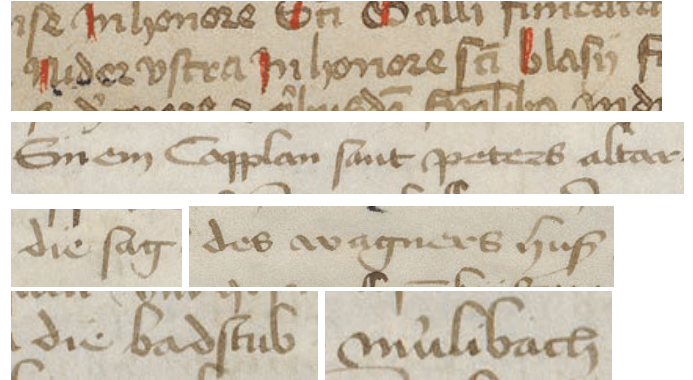 In honore Scti Galli
vstra In honore scti blasii
Einem Capplan sant peters altar
die sag
des wagners huß
die badstub
mülibach